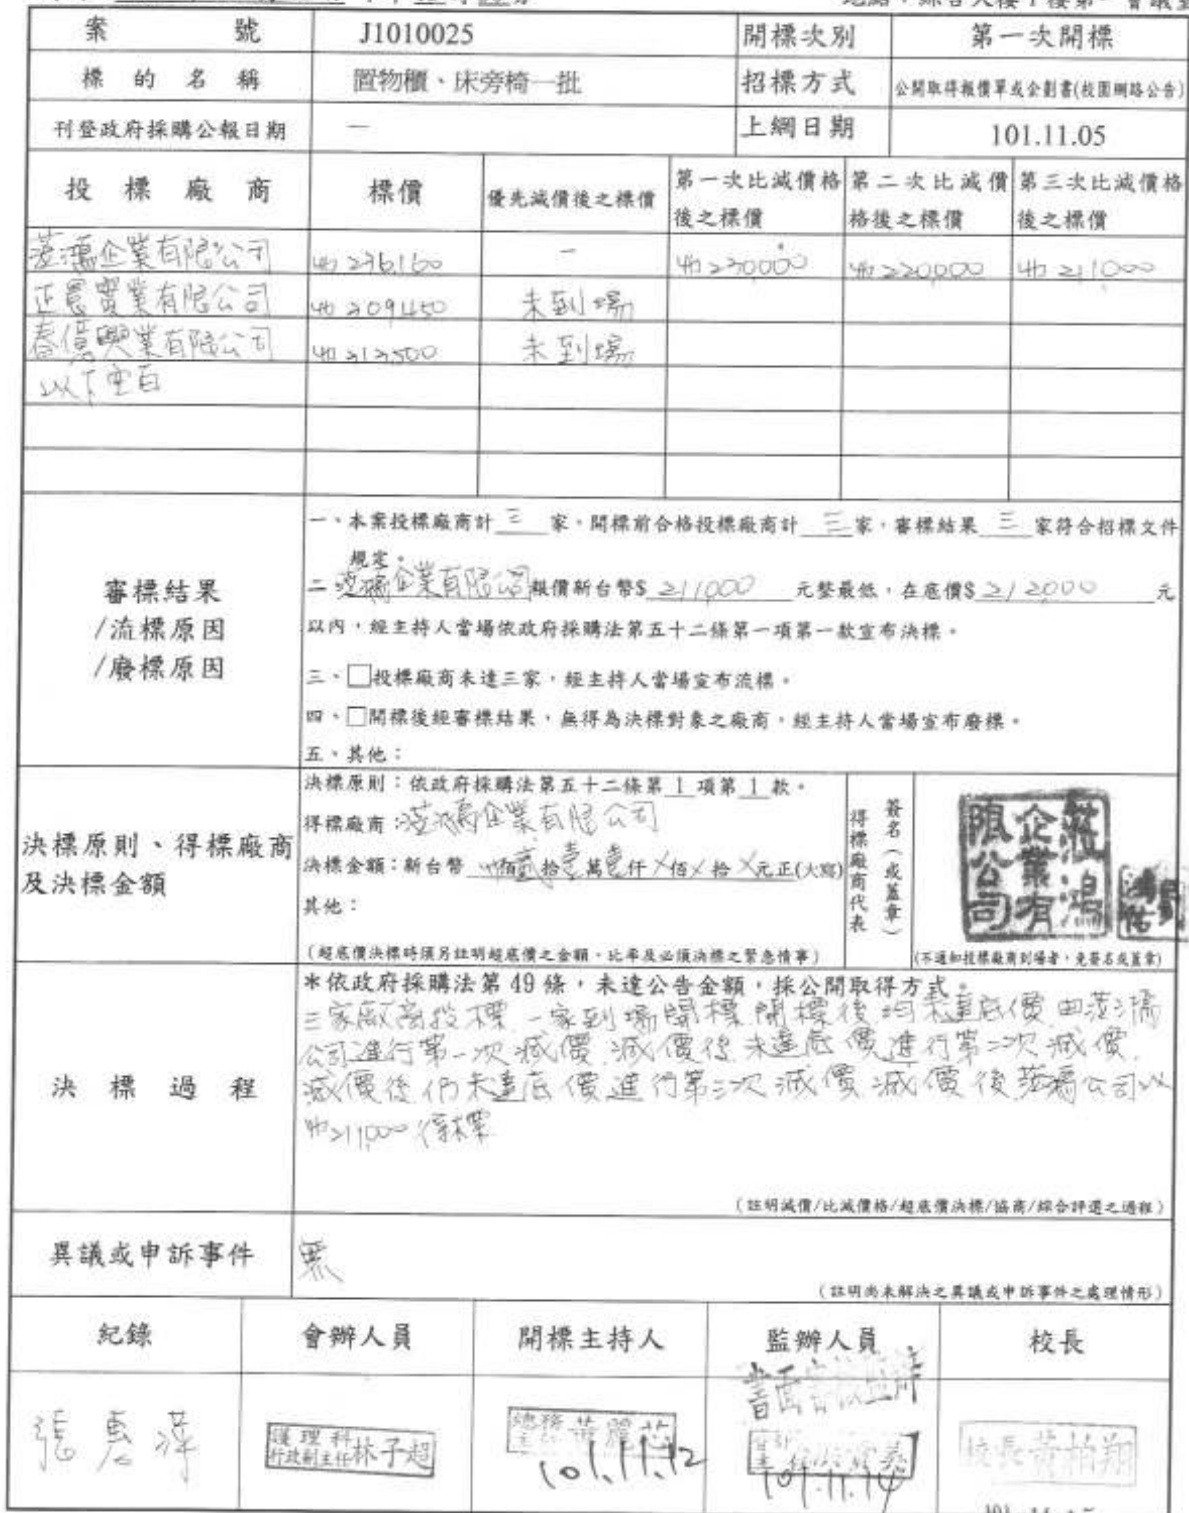 案 號 J1010025 開標次別 第一次開標
標 的 名 稱 置物櫃、床旁椅一批 招標方式 公開取得報價單或企劃書(校園網路公告)
刊登政府採購公報日期 — 上網日期 101.11.05
投 標 廠 商 標價 優先減價後之標價 第一次比減價格後之標價 第二次比減價格後之標價 第三次比減價格後之標價
鴻企業有限公司 236,160 — 230,000 220,000 211,000
實業有限公司 209450 未到場
春億興業有限公司 212500 未到場
以下空白
審標結果
/流標原因
/廢標原因
一、本案投標廠商計 三 家,開標前合格投標廠商計 三 家,審標結果 三 家符合招標文件
規定。
二 鴻企業有限公司報價新台幣$ 211,000 元整最低,在底價$ 212000 元
以內,經主持人當場依政府採購法第五十二條第一項第一款宣布決標。
三、□投標廠商未達三家,經主持人當場宣布流標。
四、□開標後經審標結果,無得為決標對象之廠商,經主持人當場宣布廢標。
五、其他:
決標原則、得標廠商
及決標金額
決標原則:依政府採購法第五十二條第 1 項第 1 款。
得標廠商: 鴻企業有限公司
決標金額:新台幣 佰貳拾壹萬壹仟X佰X拾X元正(大寫)
其他:
(超底價決標時須另註明超底價之金額、比率及必須決標之緊急情事)
得標廠商代表
簽名(或蓋章)
鴻企業有限公司
(不通知投標廠商到場者,免簽名或蓋章)
決 標 過 程
*依政府採購法第 49 條,未達公告金額,採公開取得方式。
三家廠商投標 一家到場開標 開標後均未達底價 由 鴻
公司進行第一次減價 減價後 未達底價 進行第二次減價
減價後仍未達底價 進行第三次減價 減價後 鴻公司以
211,000 得標
(註明減價/比減價格/超底價決標/協商/綜合評選之過程)
異議或申訴事件 無
(註明尚未解決之異議或申訴事件之處理情形)
紀錄 會辦人員 開標主持人 監辦人員 校長
書面審核監辦
張惠萍
護理科
行政副主任 林子超
總務主任 黃麗芯
101.11.12
101.11.14
校長黃柏翔